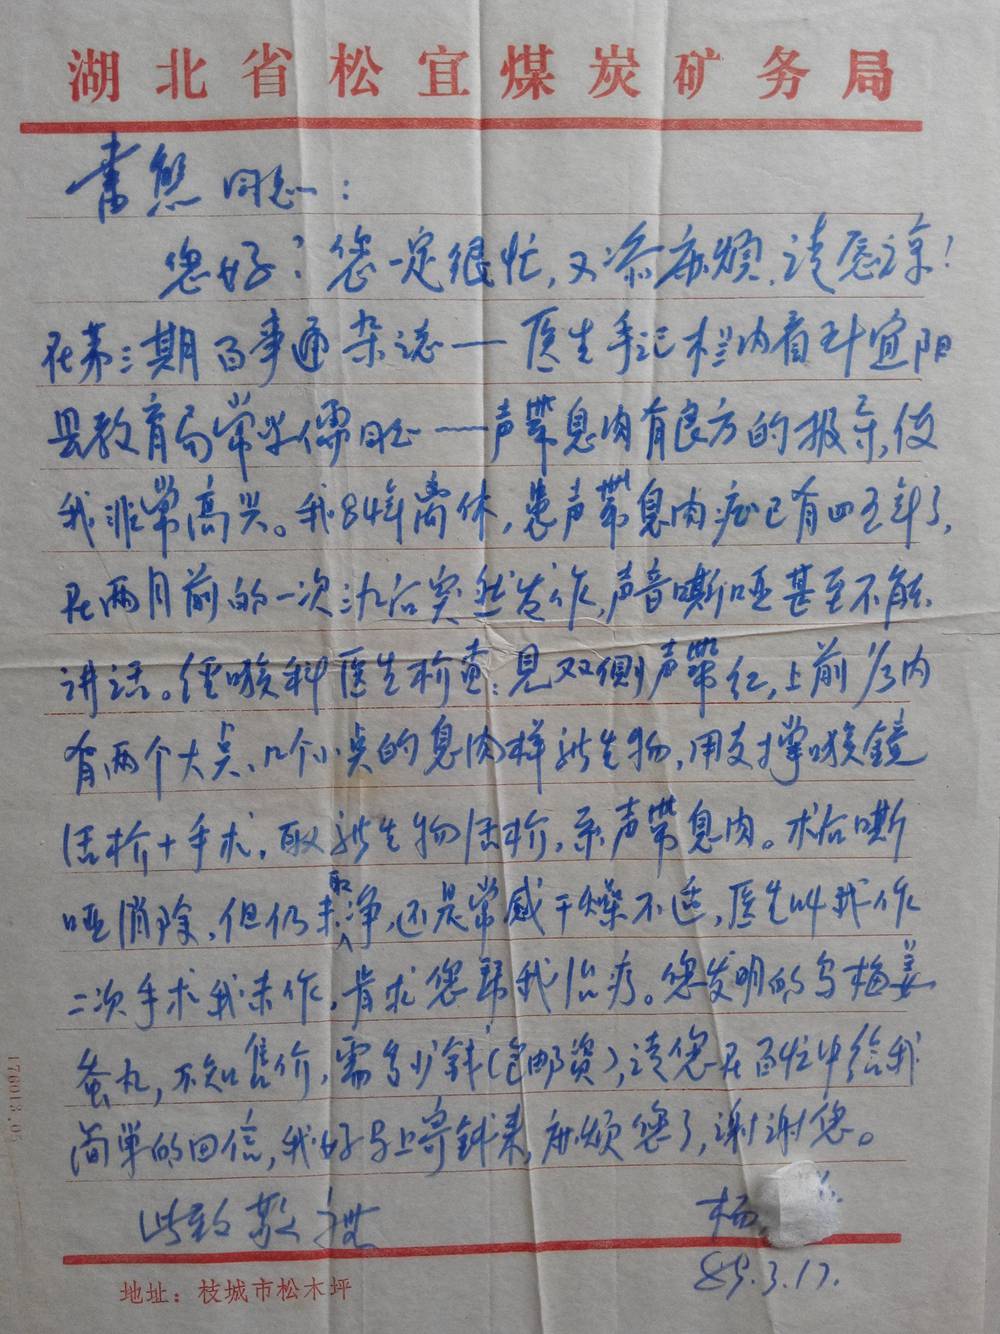 湖北省松宜煤炭矿务局
同志:
您好!您一定很忙,又添麻烦,请原谅!
在第三期百事通杂志——医生手记栏内看到宜阳
县教育局常学儒同志——声带息肉有良方的报导,使
我非常高兴。我84年离休,患声带息肉症已有四五年了,
在两月前的一次 突然发作,声音嘶哑甚至不能
讲话。经喉科医生检查:见双侧声带红,上前1/3内
有两个大点、几个小点的息肉样新生物,用支撑喉镜
活检+手术,取新生物活检,系声带息肉。术后嘶
哑消除,但仍未取净,还是常感干燥不适,医生叫我作
二次手术我未作,肯求您帮我治疗。您发明的乌梅姜
蚕丸,不知售价,需多少钱(包邮资),请您在百忙中给我
简单的回信,我好马上寄钱来,麻烦您了,谢谢您。
此致敬礼
杨
89.3.17.
地址:枝城市松木坪
176013.05